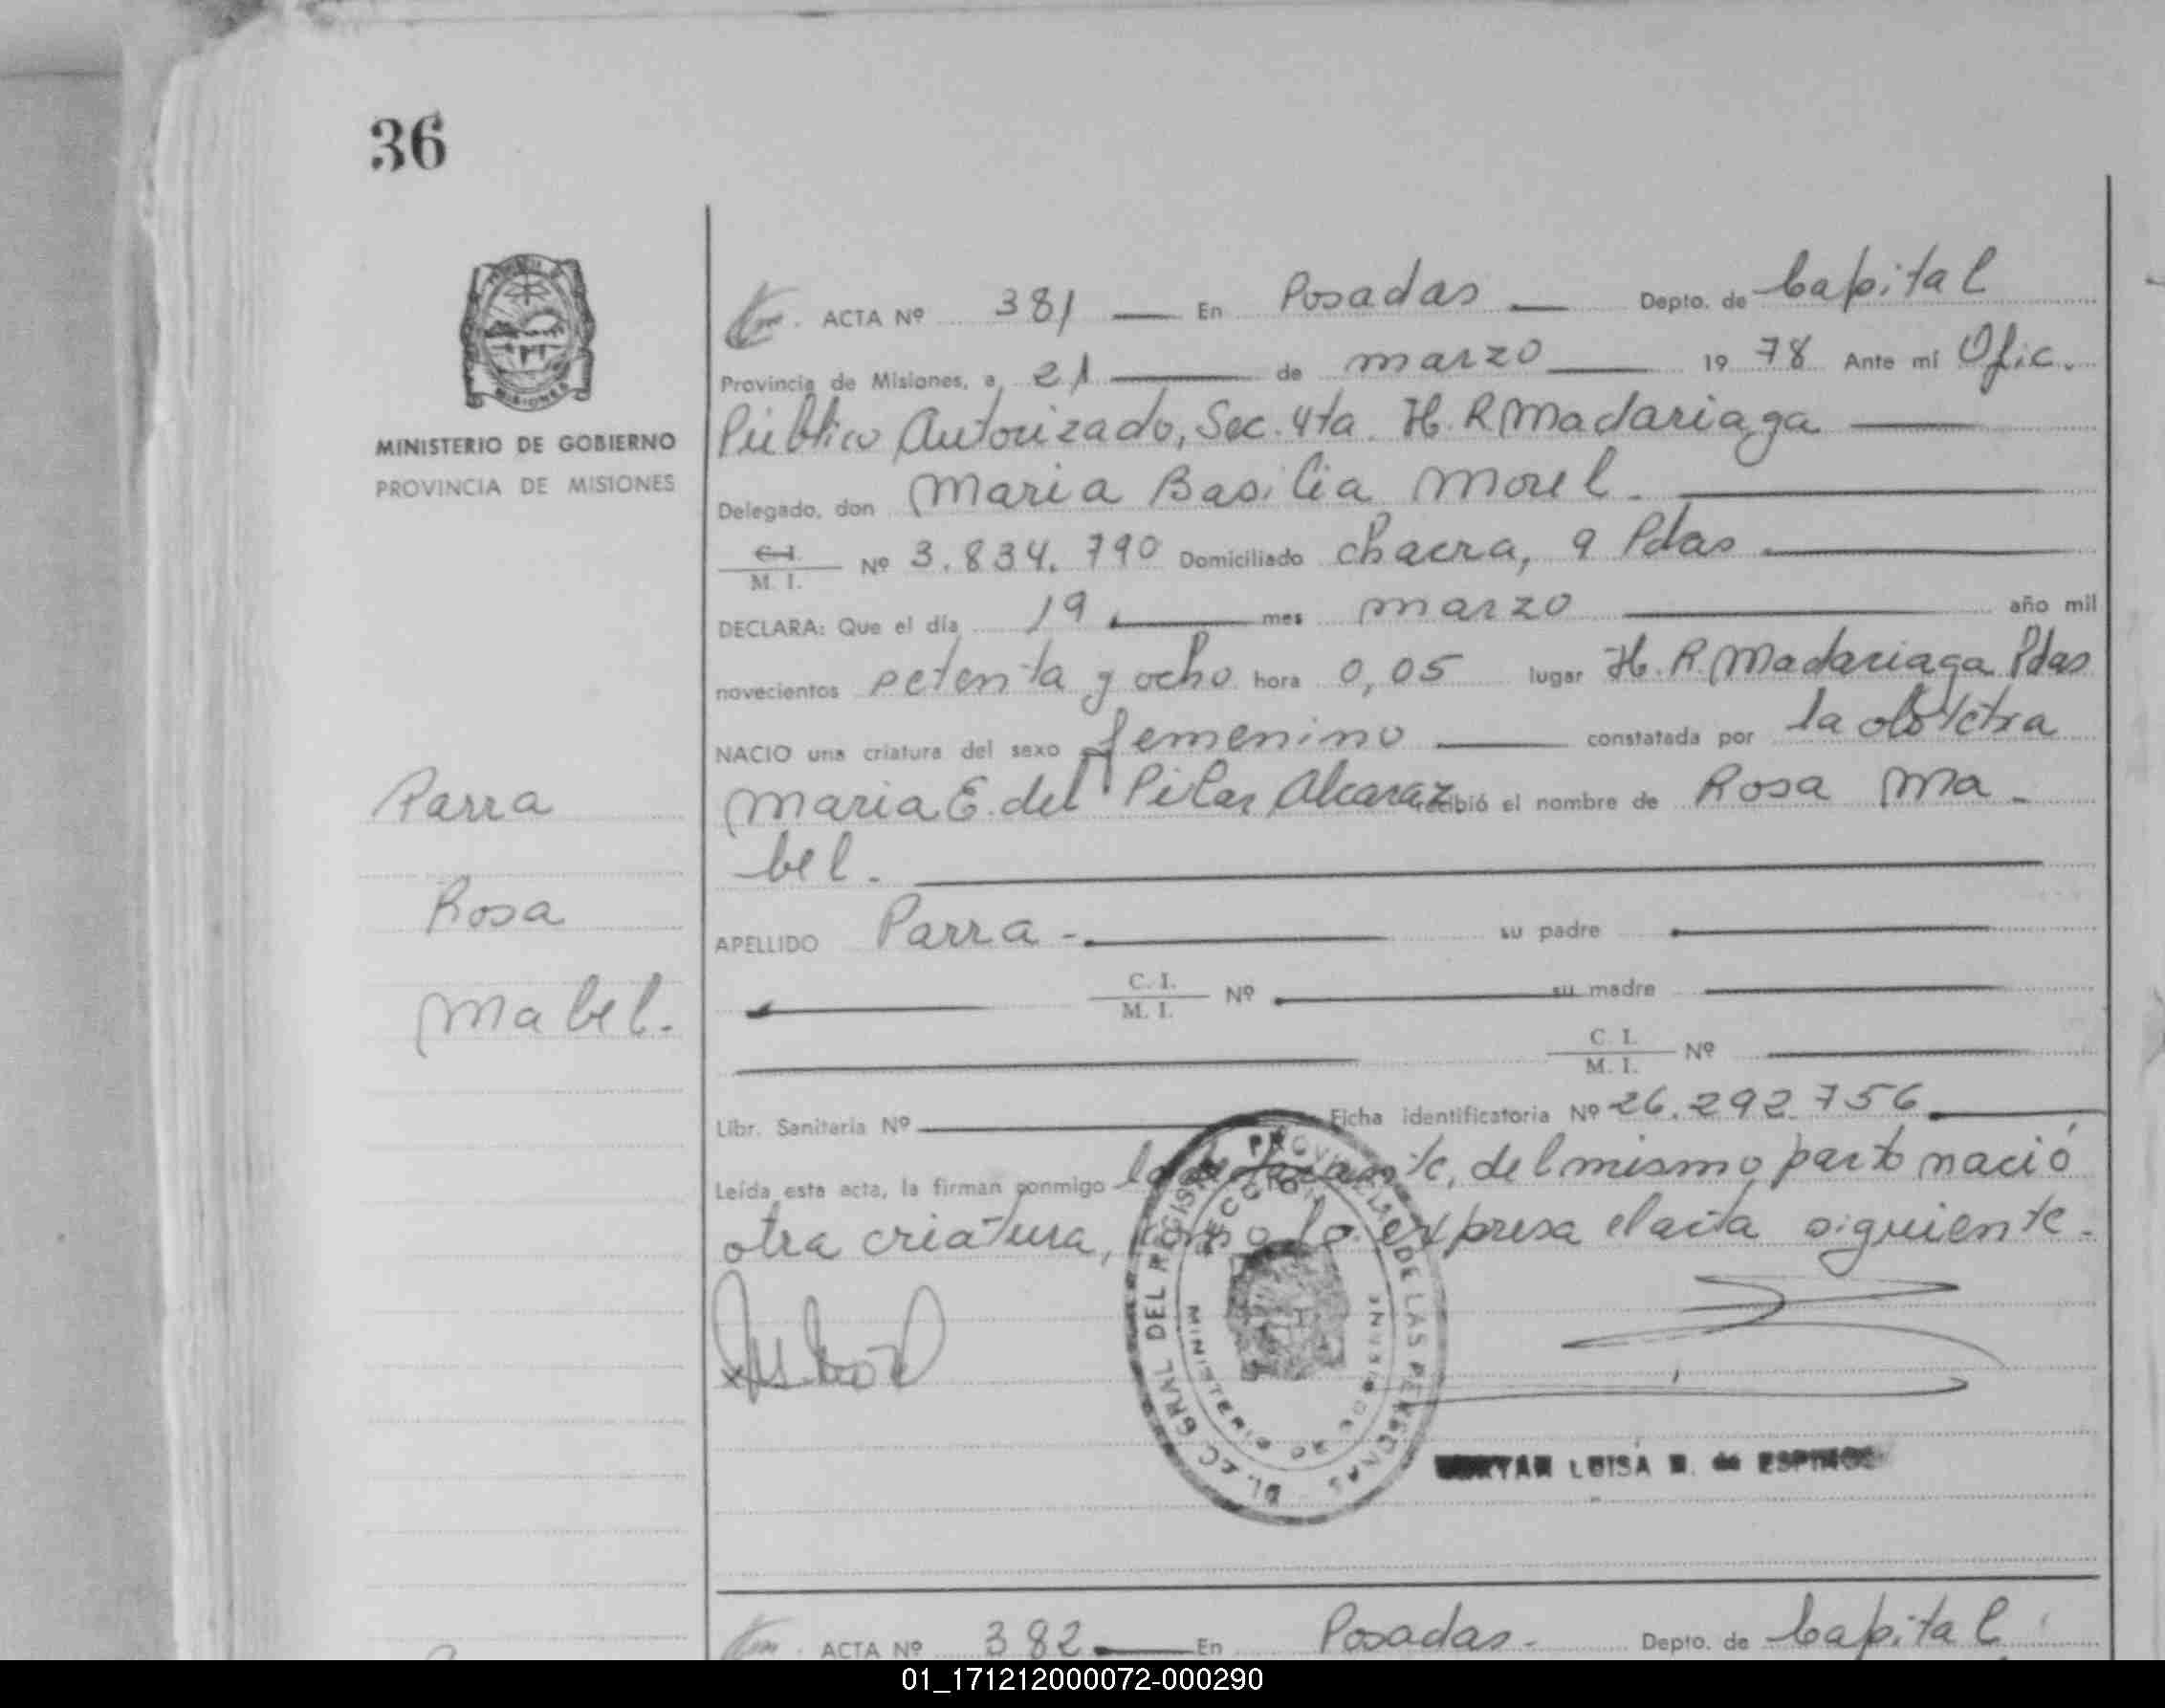 36
MINISTERIO DE GOBIERNO
PROVINCIA DE MISIONES
ACTA Nº 381 En Posadas Depto. de Capital
Provincia de Misiones, a 21 de marzo 19 78 Ante mí Ofic.
Público Autorizado, Sec. 4ta. H. R Madariaga
Delegado, don Maria Basilia Morel.
C.I. M. I. Nº 3.834.790 Domiciliado chacra, 9 Pdas
DECLARA: Que el día 19 mes marzo año mil
novecientos setenta y ocho hora 0,05 lugar H. R. Madariaga Pdas
NACIO una criatura del sexo femenino constatada por la obstetra
Maria E. del Pilar Alcaraz recibió el nombre de Rosa Ma-
bel.
Parra
Rosa
Mabel.
APELLIDO Parra - su padre
C. I. M. I. Nº su madre
C. I. M. I. Nº
Libr. Sanitaria Nº Ficha identificatoria Nº 26.292.756
Leída esta acta, la firman conmigo la declarante, del mismo parto nació
otra criatura, como lo expresa el acta siguiente.
LUISA de ESPINOS
ACTA Nº 382 En Posadas. Depto. de Capital
01_171212000072-000290